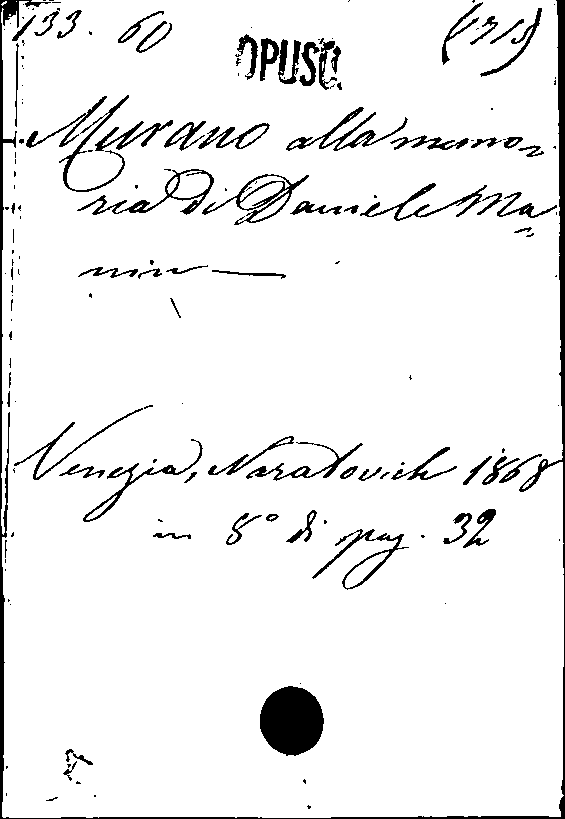 133. 60
OPUSC.
Murano alla memo-
ria di Daniele Ma-
nin —
Venezia, Naratovich 1868
in 8° di pag. 32